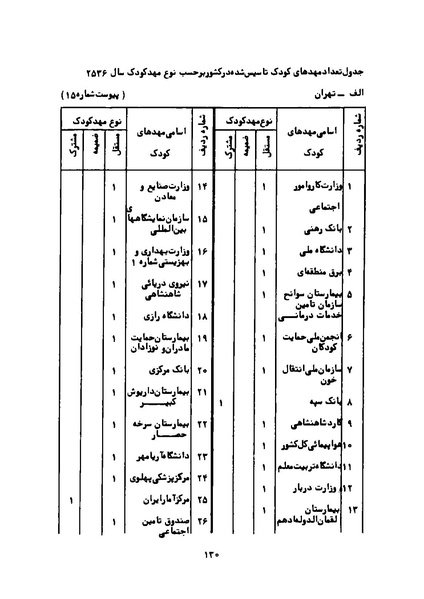 جدول تعداد مهدهای کودک تاسیس شده در کشور بر حسب نوع مهد کودک سال ۲۵۳۶
الف ــ تهران (پیوست شماره ۱۵)
شماره ردیف اسامی مهدهای کودک نوع مهد کودک مستقل ضمیمه مشترک
۱ وزارت کار و امور اجتماعی ۱
۲ بانک رهنی ۱
۳ دانشگاه ملی ۱
۴ برق منطقه‌ای ۱
۵ بیمارستان سوانح ۱
سازمان تامین
خدمات درمانی
۶ انجمن ملی حمایت ۱
کودکان
۷ سازمان ملی انتقال ۱
خون
۸ بانک سپه ۱
۹ گارد شاهنشاهی ۱
۱۰ هواپیمائی کل کشور ۱
۱۱ دانشگاه تربیت معلم ۱
۱۲ وزارت دربار ۱
۱۳ بیمارستان ۱
لقمان الدوله ادهم
شماره ردیف اسامی مهدهای کودک نوع مهد کودک مستقل ضمیمه مشترک
۱۴ وزارت صنایع و ۱
معادن
۱۵ سازمان نمایشگاههای ۱
بین المللی
۱۶ وزارت بهداری و ۱
بهزیستی شماره ۱
۱۷ نیروی دریائی ۱
شاهنشاهی
۱۸ دانشگاه رازی ۱
۱۹ بیمارستان حمایت ۱
مادران و نوزادان
۲۰ بانک مرکزی ۱
۲۱ بیمارستان داریوش ۱
کبیر
۲۲ بیمارستان سرخه ۱
حصار
۲۳ دانشگاه آریامهر ۱
۲۴ مرکز پزشکی پهلوی ۱
۲۵ مرکز آمار ایران ۱
۲۶ صندوق تامین ۱
اجتماعی
۱۳۰